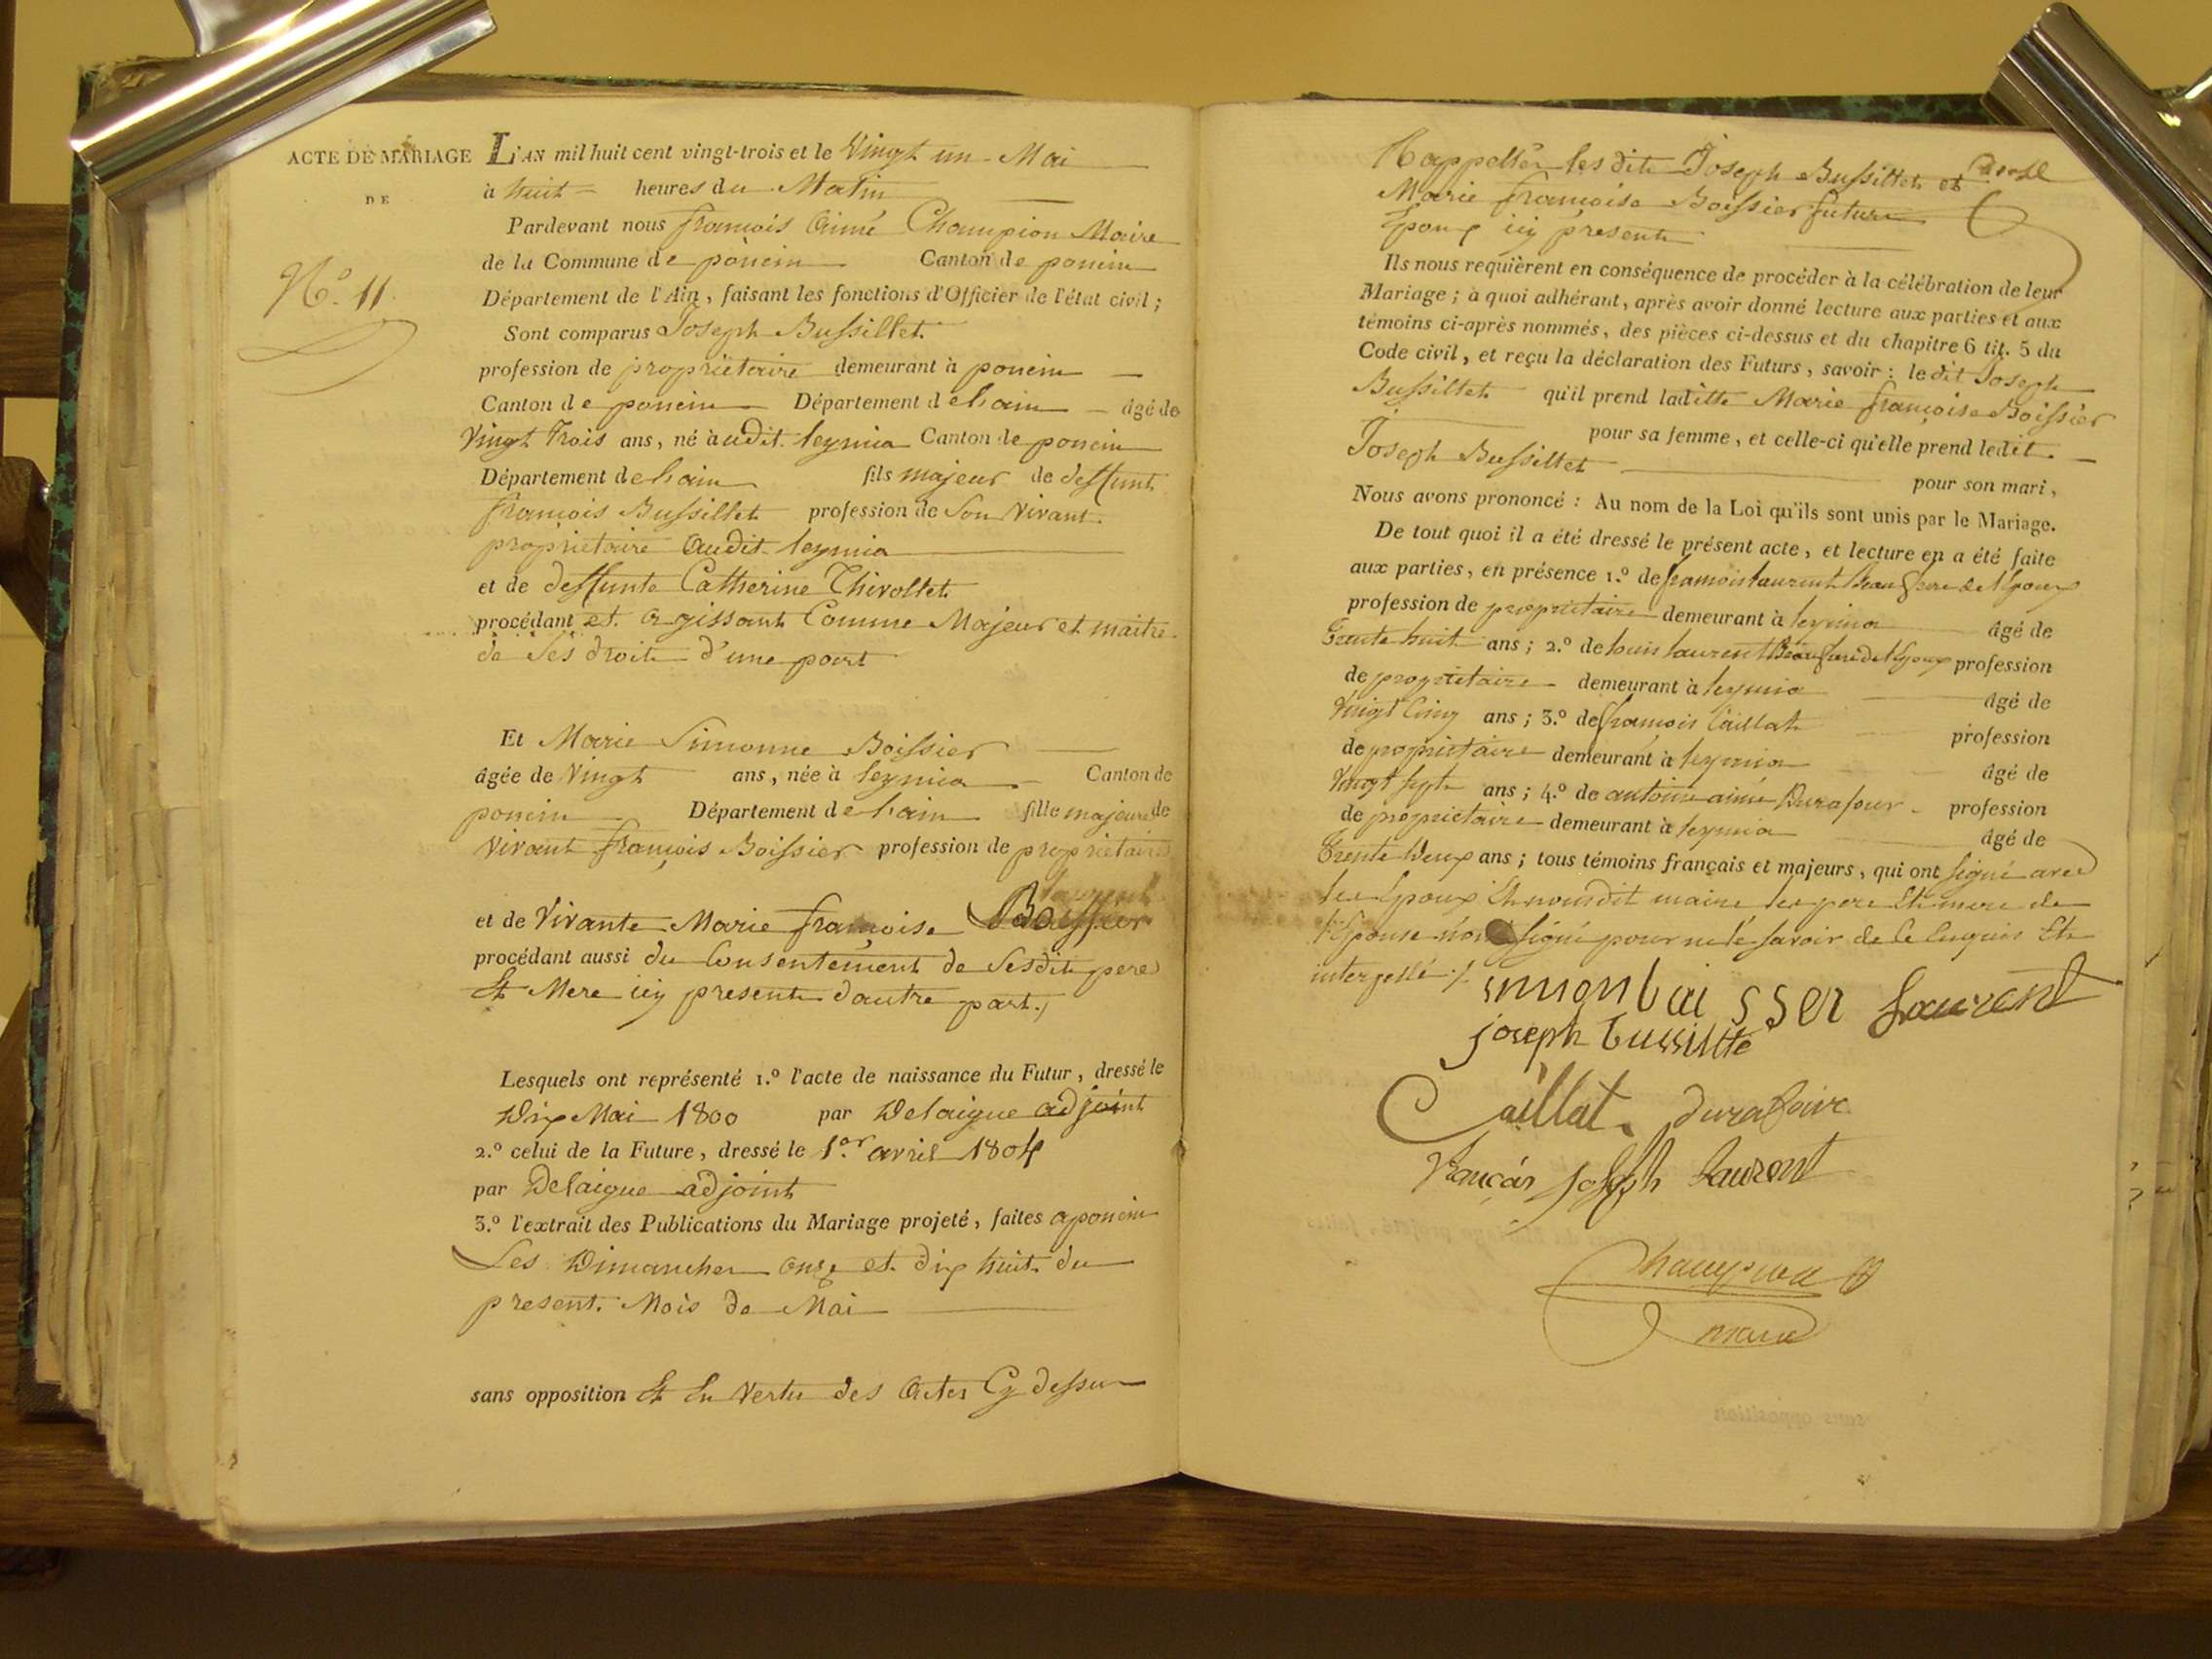 ACTE DE MARIAGE
DE
N.o 11
L'AN mil huit cent vingt-trois et le Vingt un Mai
à huit heures du Matin
Pardevant nous françois Aimé Champion Maire
de la Commune de poncin Canton de poncin
Département de l'Ain, faisant les fonctions d'Officier de l'état civil;
Sont comparus Joseph Bussillet
profession de propriétaire demeurant à poncin
Canton de poncin Département de l'ain âgé de
Vingt trois ans, né audit leymia Canton de poncin
Département de l'ain fils majeur de deffunt
françois Bussillet profession de Son Vivant
propriétaire audit leymia
et de deffunte Catherine Thivollet
procédant et agissant Comme Majeur et maitre
de Ses droits d'une part
Et Marie Simonne Boissier
âgée de Vingt ans, née à leymia Canton de
poncin Département de l'ain fille majeure de
Vivant françois Boissier profession de propriétaire
laurent
et de Vivante Marie françoise Boissier
procédant aussi du Consentement de Sesdit pere
Et Mere icy present d'autre part.
Lesquels ont représenté 1.o l'acte de naissance du Futur, dressé le
Dix Mai 1800 par Delaigue adjoint
2.o celui de la Future, dressé le 1.er avril 1804
par Delaigue adjoint
3.o l'extrait des Publications du Mariage projeté, faites a poncin
Les Dimanches onze et dix huit du
present Mois de Mai
sans opposition Et En Vertu des Actes Cy dessus
Rappellés les dits Joseph Bussillet et
Marie françoise Boissier future
Epoux icy presents
Ils nous requièrent en conséquence de procéder à la célébration de leur
Mariage; à quoi adhérant, après avoir donné lecture aux parties et aux
témoins ci-après nommés, des pièces ci-dessus et du chapitre 6 tit. 5 du
Code civil, et reçu la déclaration des Futurs, savoir: le dit Joseph
Bussillet qu'il prend laditte Marie françoise Boissier
pour sa femme, et celle-ci qu'elle prend ledit
Joseph Bussillet pour son mari,
Nous avons prononcé: Au nom de la Loi qu'ils sont unis par le Mariage.
De tout quoi il a été dressé le présent acte, et lecture en a été faite
aux parties, en présence 1.o de francois laurent Beau frere de l'Epoux
profession de propriétaire demeurant à leymia âgé de
Trente huit ans; 2.o de louis laurent Beau frere de l'Epoux profession
de propriétaire demeurant à leymia âgé de
Vingt Cinq ans; 3.o de françois Caillat profession
de propriétaire demeurant à leymia âgé de
Vingt Sept ans; 4.o de antoine aimé Durafour profession
de propriétaire demeurant à leymia âgé de
Trente Deux ans; tous témoins français et majeurs, qui ont Signé avec
les Epoux Et nousdit maire les pere Et mere de
l'Epouse n'ont Signé pour ne le savoir de Ce Enquis Et
interpellé
simon bai sser Laurent
joseph bussillte
Caillat durafour
françois joseph laurent
Champion
maire